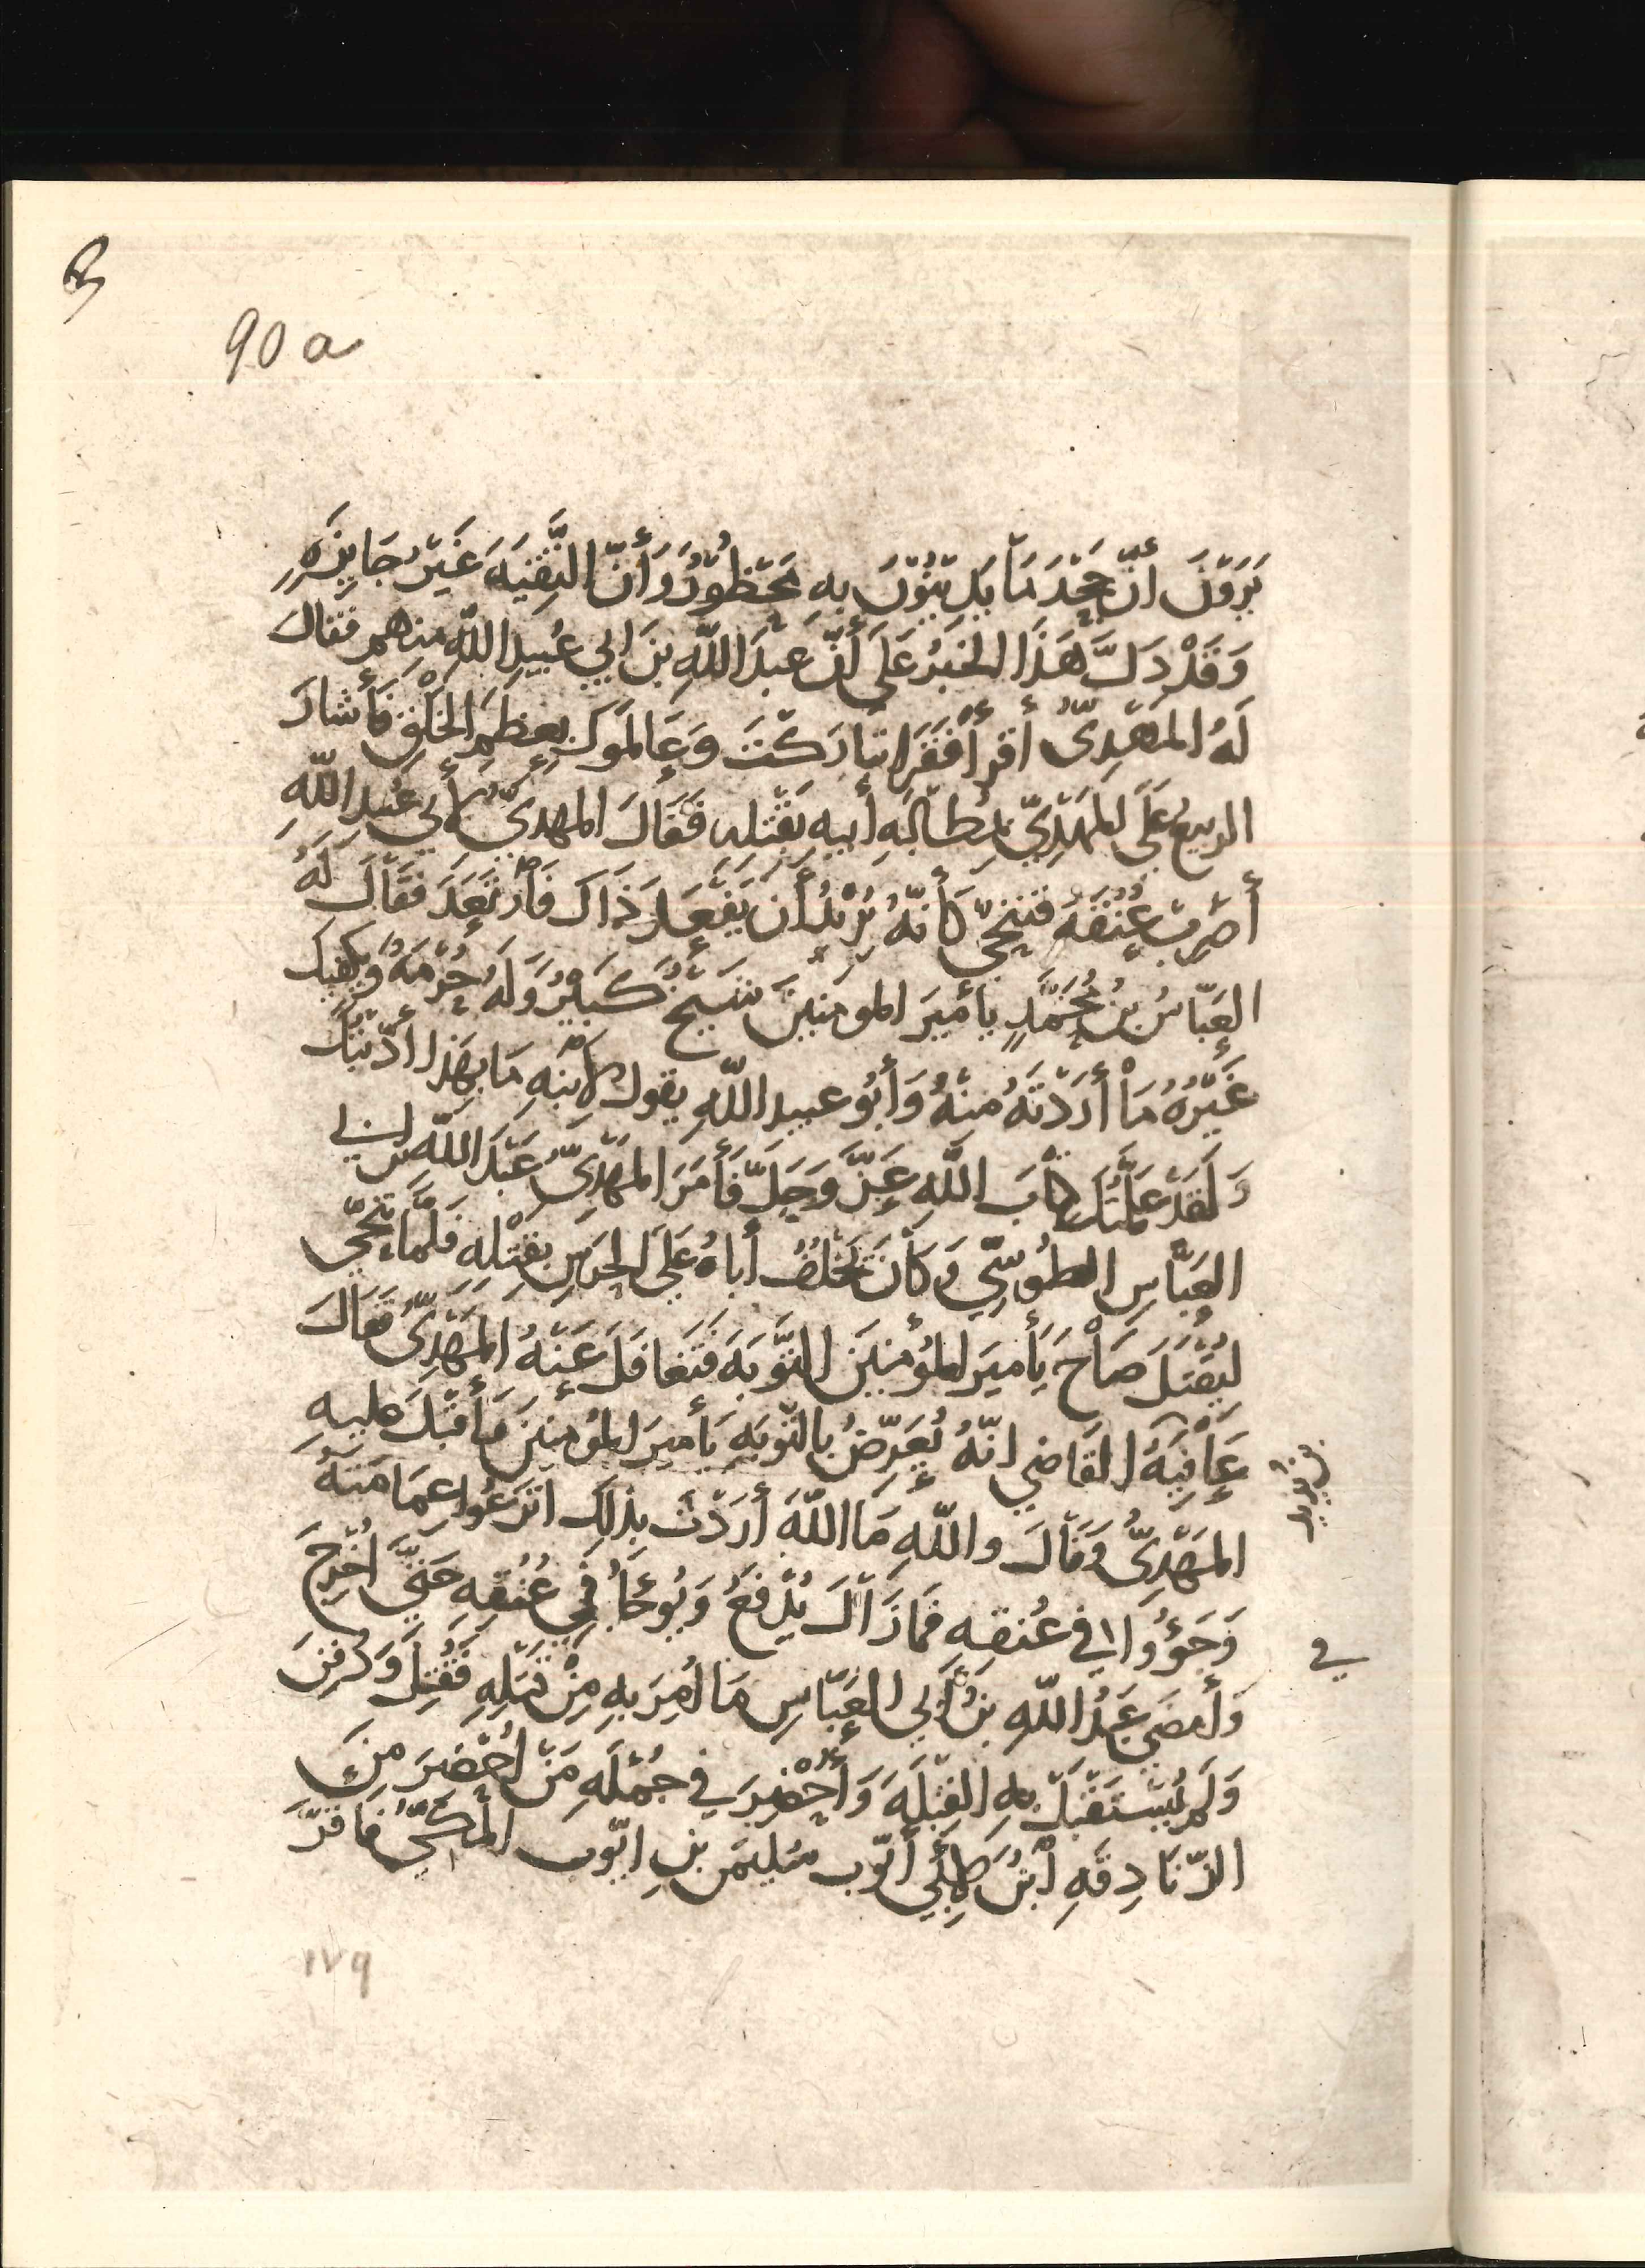 90 a
يَرَوْنَ أنّ جَحْدَ مَا يَدِينُوْنَ بِهِ مَحْظُورٌ وَأنّ التَّقِيَةَ غَيْرُ جَايِزَةٍ
وَقَدْ دَلَّ هَذَا الخَبَرُ عَلَى أنّ عَبدَ اللهِ بنَ ابي عُبيدِ اللهِ منهم فقال
لَهُ المَهْدِىُّ أقرأ فَقَرأ تباركتَ وَعالموك بعظم الخَلْقِ فأشارَ
الربيعُ عَلَى المَهْدِيّ بمُطَالبَةِ أبيهِ بقَتْله فَقَالَ المهدىُّ لأبي عُبيدِ اللهِ
أضرِبْ عُنُقَهُ فتنحّى كأنّهُ يُرِيْدُ أن يَفْعَلَ ذَاكَ فأرتعَدَ فَقَالَ لَهُ
العَبّاسُ بنُ مُحَمَّدٍ يا أميرَ المومنينَ شَيْخٌ كَبيْرٌ وَلَهُ حُرْمَةٌ وَيكفيك
غَيْرُهُ مَا أرَدْتَهُ مِنْهُ وَأبُو عبيد اللهِ يقول لابْنِهِ مَا بهَذا أدّبْتُكَ
وَلَقَدْ عَلّمْتُكَ كِتَابَ اللهِ عَزّ وَجَلّ فَأمَرَ المَهْدِىُّ عَبْدَ اللهِ بن ابي
العَبَّاسِ الطُوسِّي وَكَانَ يَخْلُفُ أباهُ عَلَى الحَرَسِ بقَتْلِهِ فَلَمّا نُحّي
ليُقْتَلَ صَاحَ يَأميرَ المؤمنينَ التَّوبَةَ فَتَغَافَلَ عَنْهُ المَهْدِىُّ فقَالَ
عَافِيَةُ القَاضي انّهُ يُعَرّضُ بالتّوبَةِ يَأميرَ المؤمنينَ فَأقْبَلَ عليهِ
بن يزيد
المَهْدِىُّ وَقَالَ واللهِ مَا اللهَ أرَدْتَ بذلِكَ انْزعُوا عمَامَتَهُ
وَجَؤُوا في عُنقِهِ فمَا زَالَ يُدْفَعُ وَيُوجَأُ في عُنُقِهِ حَتّى اُخْرِجَ
في
وَأمضَى عَبْدُ اللهِ بنُ أبي العَبّاسِ مَا اُمِرَ بهِ مِنْ قَتْلِهِ فَقُتِلَ وَدُفِنَ
وَلَم يُسْتَقْبَلْ بهِ القِبْلَةَ وَأُحْضِرَ في جُمْلَةِ مَنْ اُحْضِرَ مِنَ
الزّنَادِقَةِ ابْنٌ لأبي أيّوب سُليمَن بنِ ايّوب المَكّيُّ فأقرّ
١٧٩